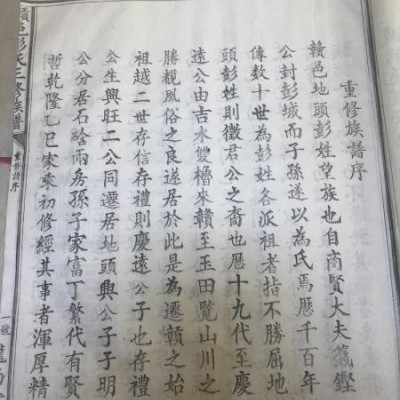 重修族譜序
贛邑地頭彭姓望族也自商賢大夫籛鏗
公封彭城而子孫遂以為氏焉歷千百年
傳数十世為彭姓各派祖者指不勝屈地
頭彭姓則徵君公之裔也歷十九代至慶
遠公由吉水雙櫓來贛至玉田覽山川之
勝觀風俗之良遂居於此是為遷贛之始
祖越二世存信存禮則慶遠公子也存禮
公生興旺二公同遷居地頭興公子子明
公分居石啥兩房孫子家富丁繁代有賢
哲乾隆乙巳家乘初修經其事者渾厚精
彭氏三修族譜
重修譜序
一號